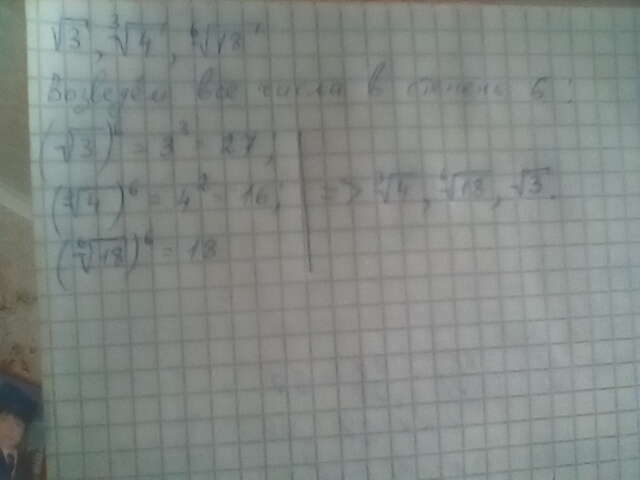 √3, ∛4, ⁶√18
Возведём все числа в степень 6:
(√3)⁶ = 3³ = 27;
(∛4)⁶ = 4² = 16; => ∛4, ⁶√18, √3.
(⁶√18)⁶ = 18